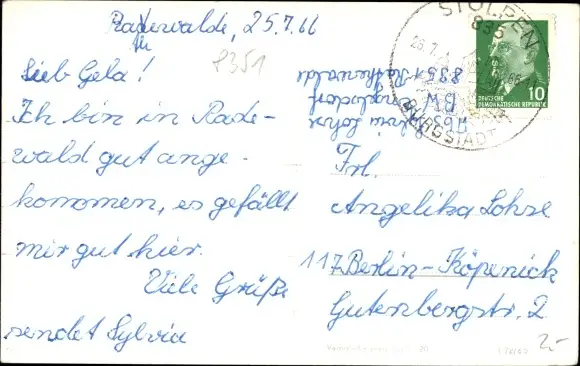 Radewalde, 25.7.66
th
8351
Lieb Gela!
Ich bin in Rade-
wald gut ange-
kommen, es gefällt
mir gut hier.
Viele Grüße
sendet Sylvia
Sylvia Lohse
8351 Rathewalde
STOLPEN
835
BURGSTADT
DEUTSCHE
DEMOKRATISCHE REPUBLIK
10
Frl.
Angelika Lohse
117 Berlin-Köpenick
Gutenbergstr. 2
2,-